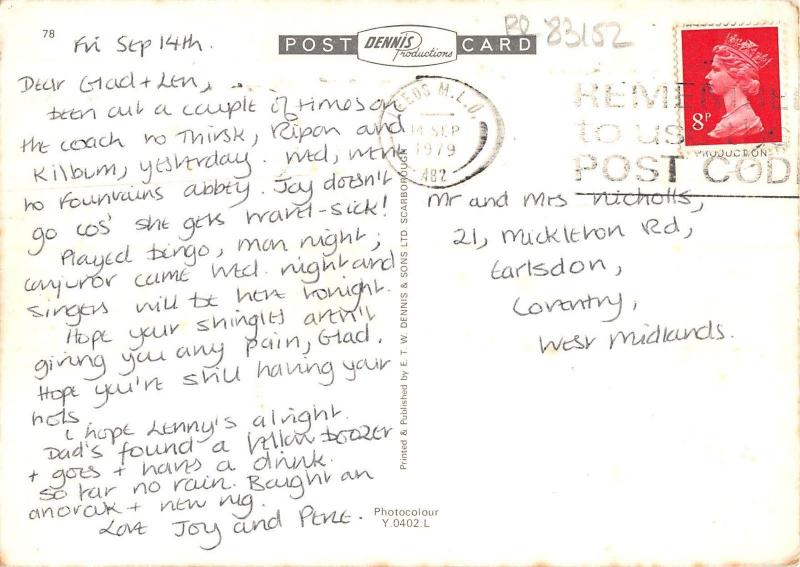 78
Fri Sep 14th.
POST DENNIS Productions CARD
BO 83/52
Dear Glad + Len,
Been out a couple of times on
the coach to Thirsk, Ripon and
Kilburn, yesterday. Wed, went
to Fountains abbey. Joy doesn't
go cos' she gets travel-sick!
Played bingo, mon night;
conjuror came wed. night and
singers will be here tonight.
Hope your shingles aren't
giving you any pain, Glad.
Hope you're still having your
hots
I hope Lenny's alright.
Dad's found a fellow boozer
+ goes + has a drink.
so far no rain. Bought an
anorak + new
Love Joy and Pete.
LEEDS M.L.O.
14 SEP
1979
482
REMEMBER
to us
POST CODE
8P
PRODUCTION
Mr and Mrs Nicholls,
21, Mickleton Rd,
Earlsdon,
Coventry,
West Midlands.
Printed & Published by E. T. W. DENNIS & SONS LTD. SCARBOROUGH
Photocolour
Y.0402.L